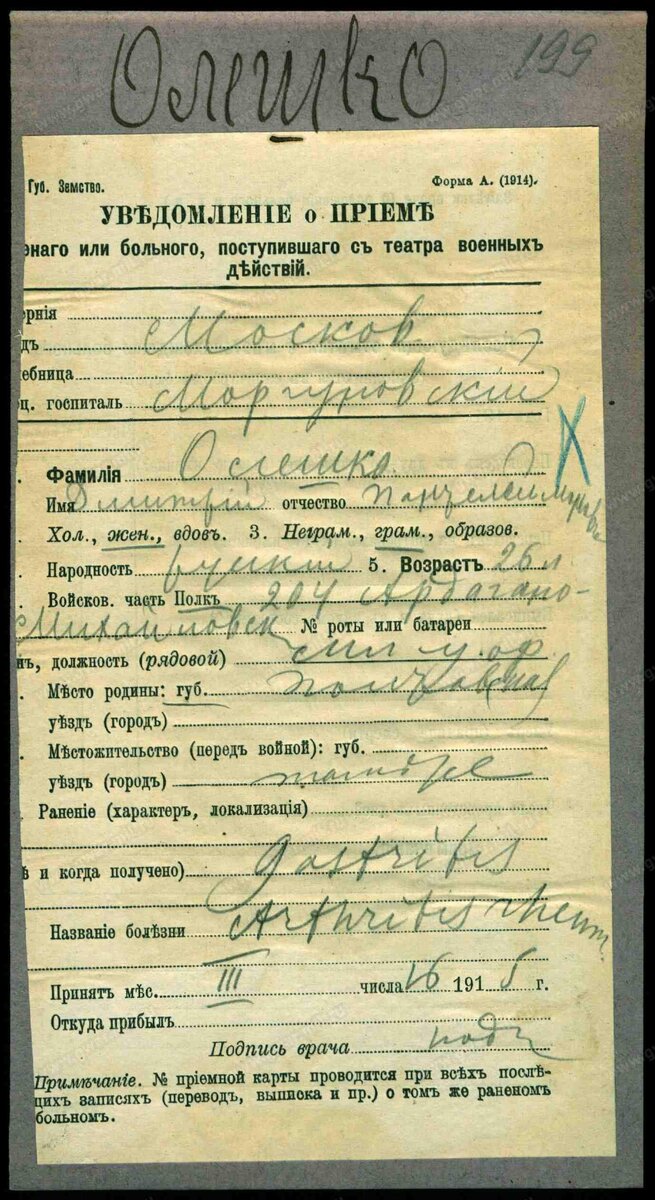 Олешко 199
Губ. Земство. Форма А. (1914).
УВѢДОМЛЕНІЕ о ПРІЕМѢ
енаго или больного, поступившаго съ театра военныхъ
дѣйствій.
ернія
дъ Москов
ебница
ц. госпиталь
Фамилія Олешко
Имя Дмитрій отчество
Хол., жен., вдовъ. 3. Неграм., грам., образов.
Народность русскій 5. Возрастъ 26 л
Войсков. часть Полкъ 204 Ардагано-
Михайловск № роты или батареи
нъ, должность (рядовой) мл у. оф.
Мѣсто родины: губ.
уѣздъ (городъ)
Мѣстожительство (передъ войной): губ.
уѣздъ (городъ)
Раненіе (характеръ, локализація)
ѣ и когда получено) Gastritis
Названіе болѣзни Arthritis rheum.
Принятъ мѣс. III числа 16 1915 г.
Откуда прибылъ
Подпись врача
Примѣчаніе. № пріемной карты проводится при всѣхъ послѣ-
щихъ записяхъ (переводъ, выписка и пр.) о томъ же раненомъ
больномъ.